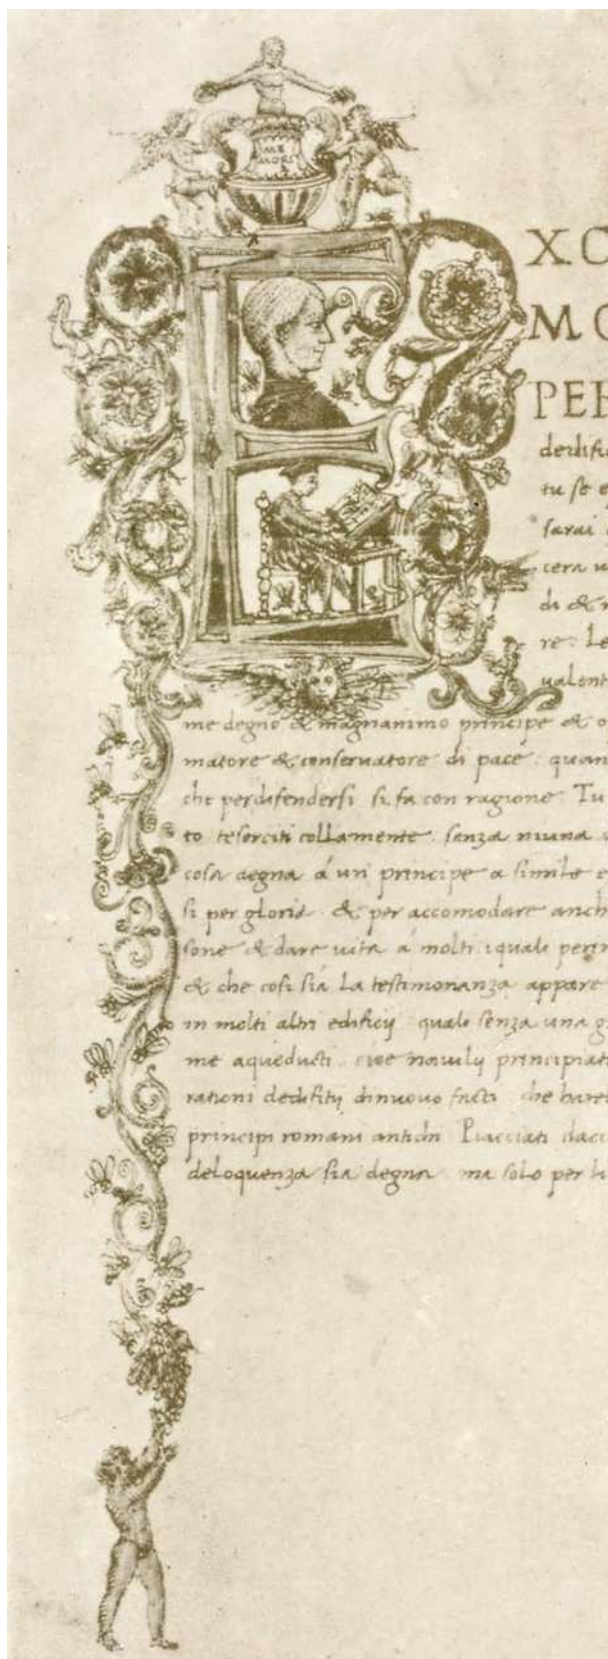 ME
MORI
E
X.C
MO
PER
dedific
tu se e
sarai
cera u
di & r
re. Le
ualent
me degno & magnanimo principe & o
matore & conseruatore di pace quan
che perdifendersi si fa con ragione Tu
to teserciti collamente senza niuna
cosa degna á uń principe a simile e
si per gloria & per accomodare anch
sone & dare uita á molti iquali perir
& che cosi sia la testimonanza appare
in molti altri edificij quali senza una g
me aqueducti cioe nauilij principiati
rationi dedifitij dinuouo facti che hare
principi romani antichi Piacciati dacc
deloquenza sia degna ma solo per li